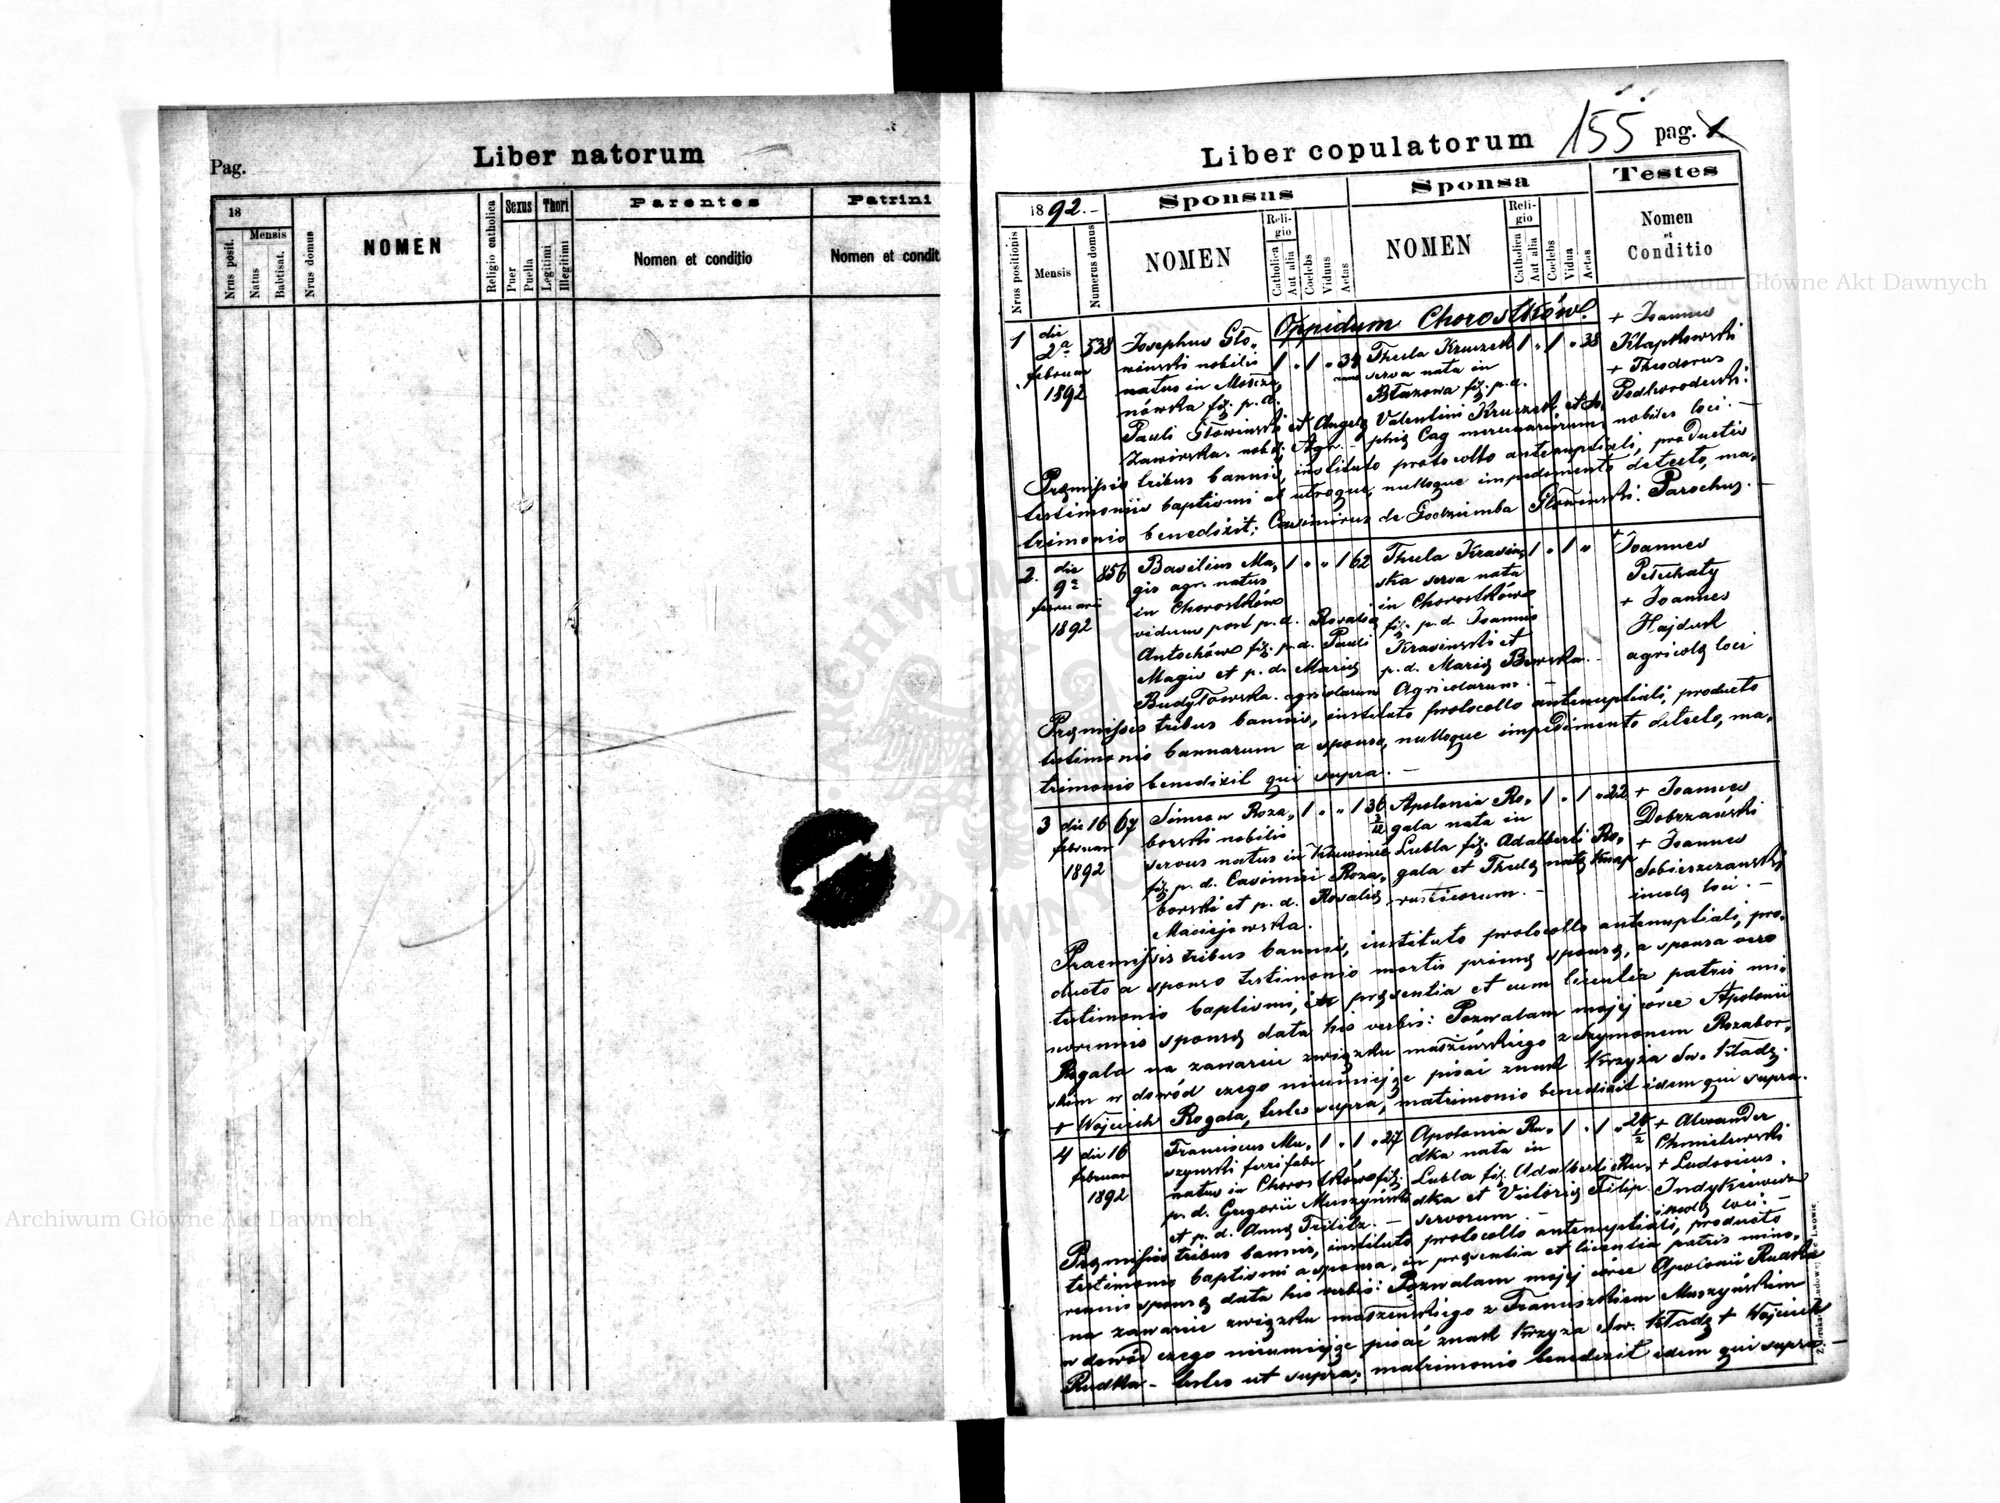 Pag.
Liber natorum
18
Nrus posit.
Mensis
Natus
Babtisat.
Nrus domus
NOMEN
Religio catholica
Sexus
Puer
Puella
Thori
Legitimi
Illegitimi
Parentes
Nomen et conditio
Patrini
Nomen et condit
Liber copulatorum
155 pag. 1
1892.-
Nrus positionis
Mensis
Numerus domus
Sponsus
NOMEN
Reli-
gio
Catholica
Aut alia
Coelebs
Viduus
Aetas
Sponsa
NOMEN
Reli-
gio
Catholica
Aut alia
Coelebs
Vidua
Aetas
Testes
Nomen
et
Conditio
Oppidum Chorostków.
1
die
2ª
februar
1892
538
Josephus Gło-
wiński nobilis
natus in
p. d.
Pauli Głowiński et
1 " 1 " 39
Thecla Kruczek
serva nata in
Błazowa fil. p. d.
Valentini Kruczek et
mercenariorum
1 " 1 " 38
+ Joannes
Kłapkowski
+ Theodorus
Podhorodecki
nobiles loci. —
Præmissis tribus bannis, instituto protocollo antenuptiali, productis
testimoniis baptismi ab utroque, nulloque impedimento detecto, ma-
trimonio benedixit: Casimirus de Godziemba Głowiński. Parochus. —
2.
die
9ª
februarii
1892
856
Basilius Ma-
gis agr. natus
in Chorostków
viduus post p. d. Rosalia
Antochów fil. p. d. Pauli
Magis et p. d. Mariæ
Budyłowska. agricolarum
1 " " 1 62
Thecla Krasiń-
ska serva nata
in Chorostków
fil. p. d. Joannis
Krasiński et
p. d. Mariæ
Agricolarum. —
1 " 1 "
+ Joannes
+ Joannes
Hajduk
agricolæ loci
Præmissis tribus bannis, instituto protocollo antenuptiali, producto
testimonio bannorum a sponsa, nulloque impedimento detecto, ma-
trimonio benedixit qui supra. —
3
die 16
februar
1892
67
Simeon Roza-
borski nobilis
servus natus in
fil. p. d. Casimiri Roza-
borski et p. d. Rosaliæ
Maciejowska.
1 " " 1 36
Apolonia Ro-
gala nata in
Lubla fil. Adalberti Ro-
gala et Theclæ natæ Knap
rusticorum. —
1 " 1 " 22
+ Joannes
Dobrzański
+ Joannes
Sobieszczański
incolæ loci. —
Praemissis tribus bannis, instituto protocollo antenuptiali, pro-
ducto a sponso testimonio mortis primæ sponsæ, a sponsa vero
testimonio baptismi, in præsentia et cum licentia patris mi-
norennis sponsæ data his verbis: Pozwalam mojej córce Apolonii
Rogala na zawarcie związku małżeńskiego z Szymonem Rozabor-
skim w dowód czego nieumiejąc pisać znak krzyża św. kładę.
+ Wojciech Rogala, testes supra, matrimonio benedixit idem qui supra.
4
die 16
februar
1892
Franciscus Mu-
szyński ferrifaber
natus in Chorostków fil.
p. d. Gregorii Muszyński
et p. d. Annæ
1 " 1 " 27
Apolonia Ru-
dka nata in
Lubla fil. Adalberti Ru-
dka et Victoriæ Filip
servorum. —
1 " 1 "
+ Alexander
Chmielewski
+ Ludovicus
incolæ loci. —
Præmissis tribus bannis, instituto protocollo antenuptiali, producto
testimonio baptismi a sponsa, in præsentia et licentia patris mino-
rennis sponsæ data his verbis: Pozwalam mojej córce Apolonii Rudka
na zawarcie związku małżeńskiego z Franciszkiem Muszyńskim
w dowód czego nieumiejąc pisać znak krzyża św. kładę + Wojciech
Rudka — testes ut supra, matrimonio benedixit idem qui supra —
Archiwum Główne Akt Dawnych
Archiwum Główne Akt Dawnych
ARCHIWUM
DAWNYCH